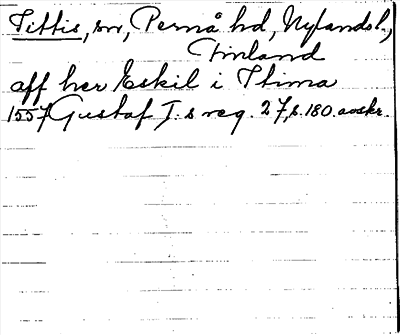 Tittis, sn, Pernå hd, Nylands l.,
Finland
aff her Eskil i Thima
1557 Gustaf I. s reg. 27, s. 180. avskr.